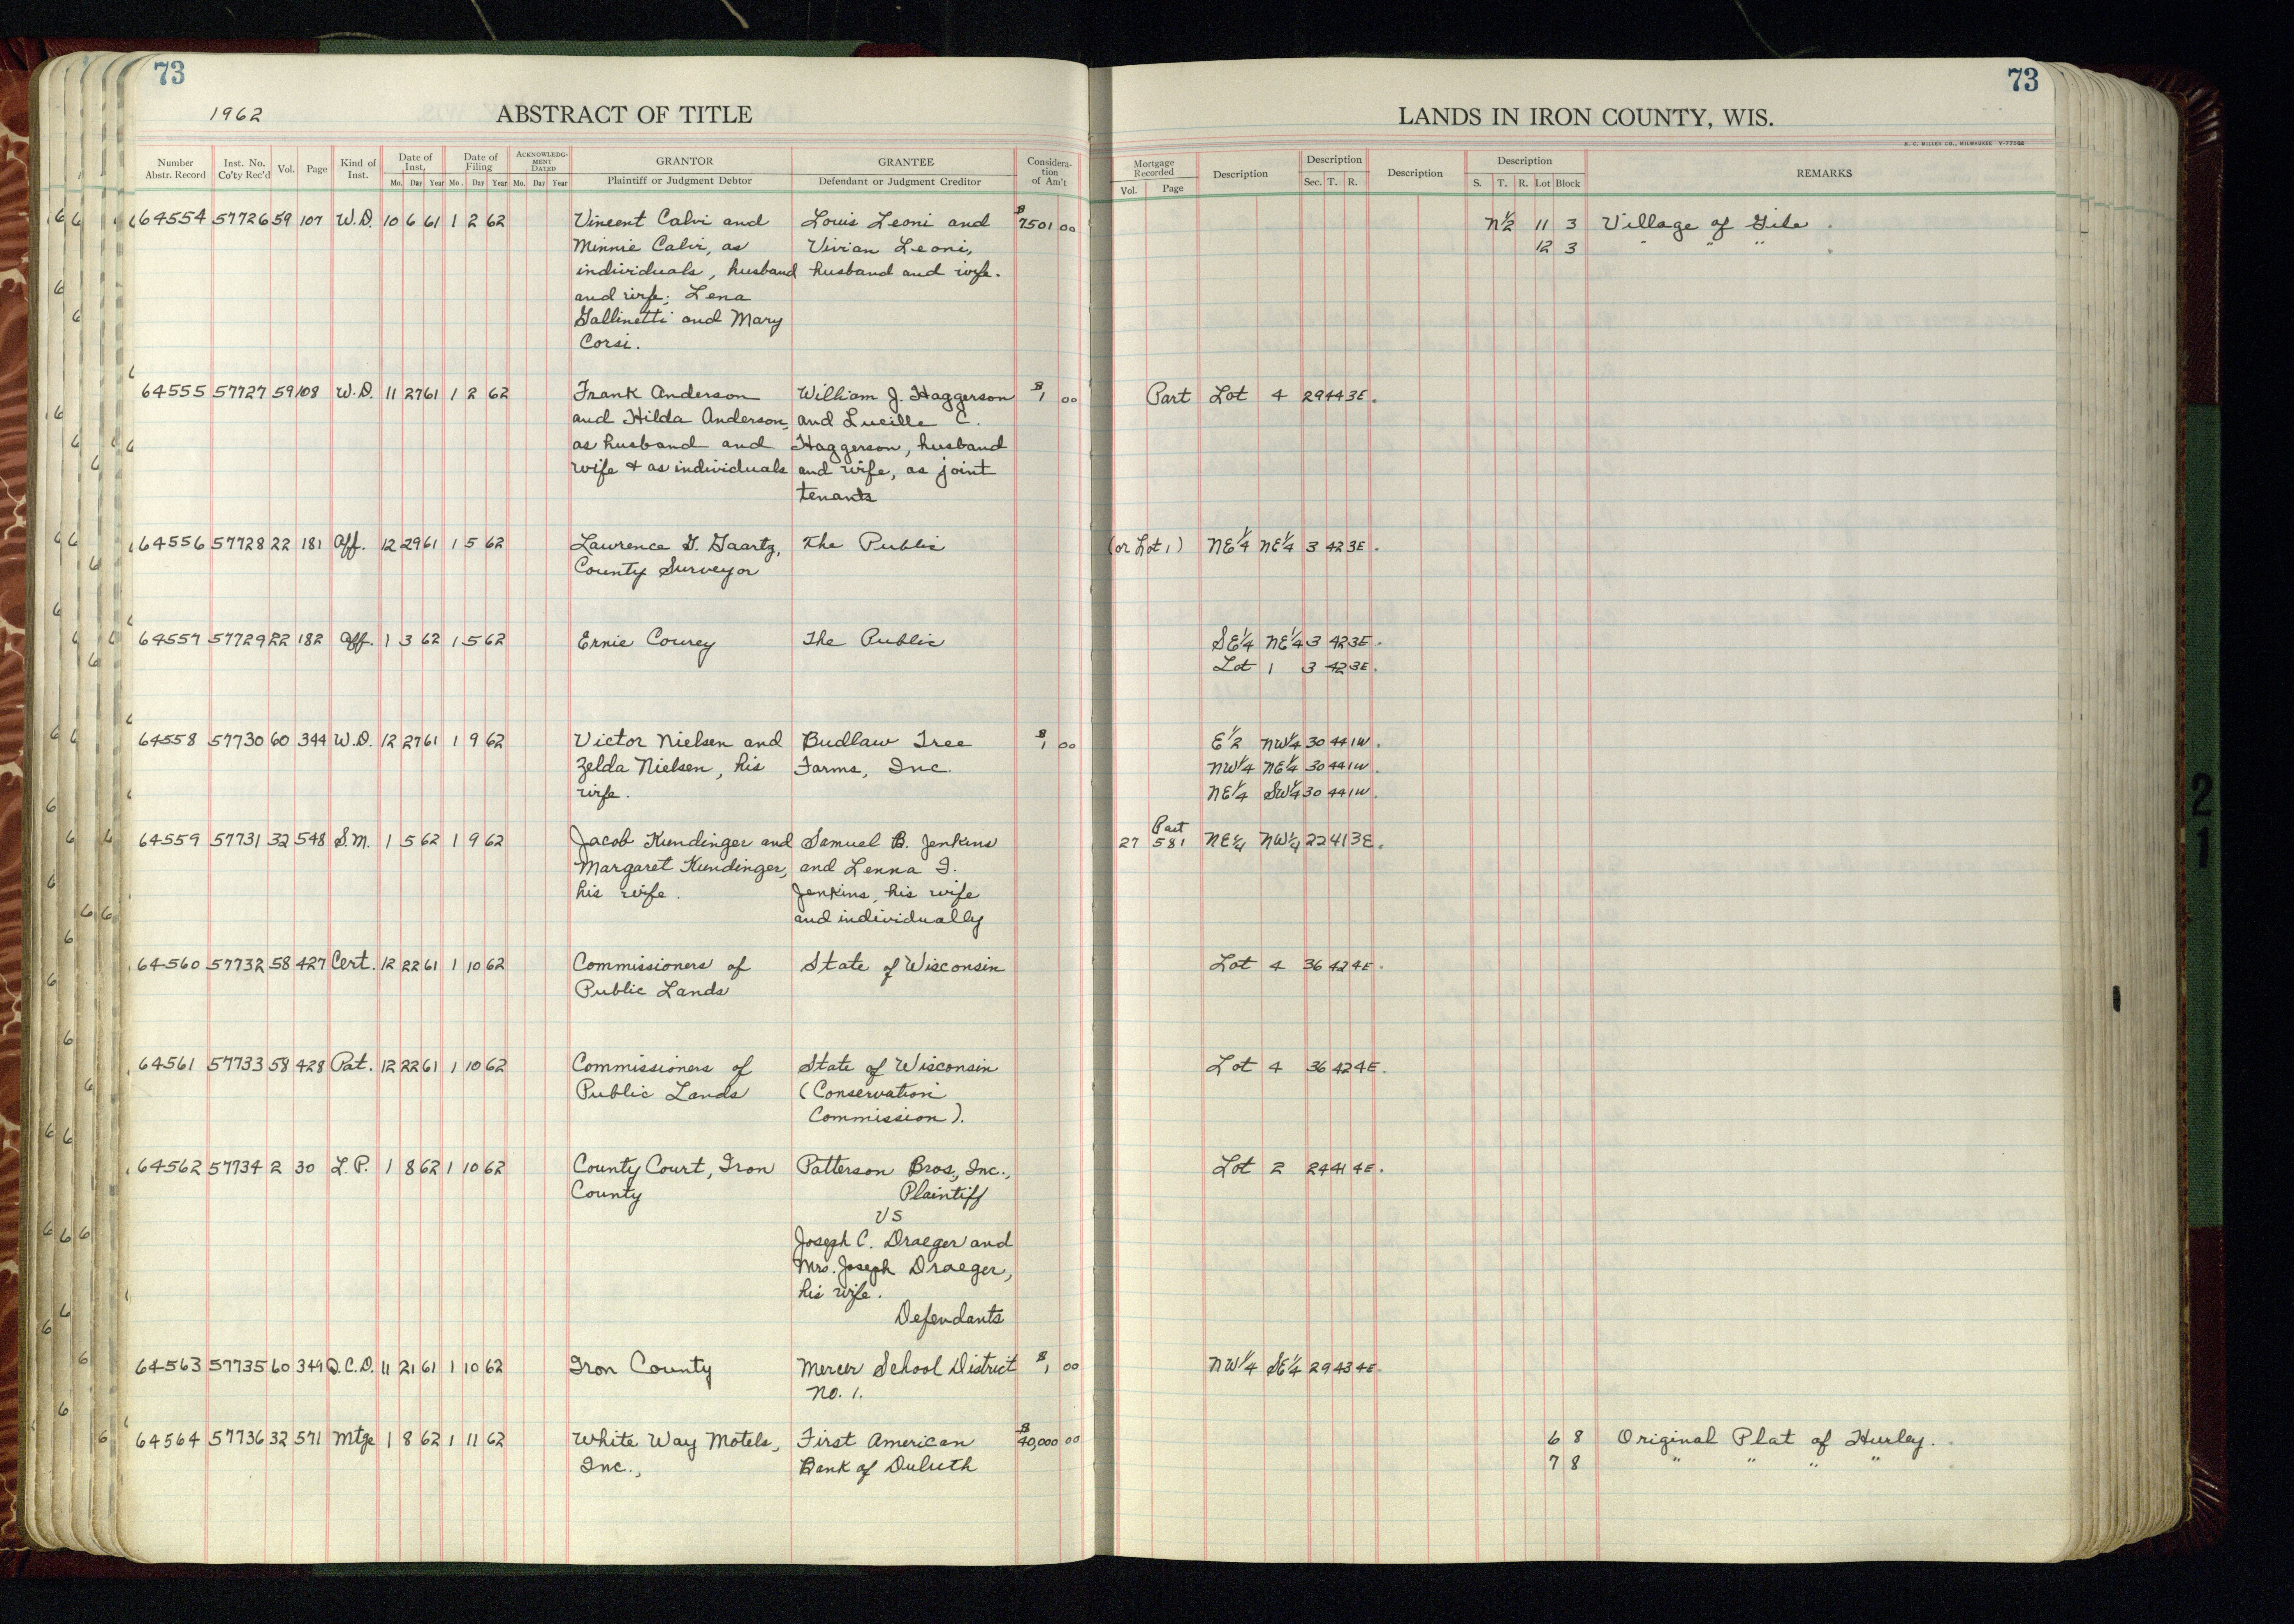 73
73
1962
ABSTRACT OF TITLE
LANDS IN IRON COUNTY, WIS.
H. C. MILLER CO., MILWAUKEE
Number Abstr. Record | Inst. No. Co'ty Rec'd | Vol. | Page | Kind of Inst. | Date of Inst. Mo. Day Year | Date of Filing Mo. Day Year | ACKNOWLEDGMENT DATED Mo. Day Year | GRANTOR Plaintiff or Judgment Debtor | GRANTEE Defendant or Judgment Creditor | Consideration of Am't | Mortgage Recorded Vol. Page | Description | Description Sec. T. R. | Description | Description S. T. R. Lot Block | REMARKS
64554 57726 59 107 W.D. 10 6 61 1 2 62 Vincent Calvi and Louis Leoni and $7501 00 N½ 11 3 Village of Gile
Minnie Calvi, as Vivian Leoni, 12 3 " " "
individuals, husband husband and wife.
and wife; Lena
Gallinetti and Mary
Corsi.
64555 57727 59 108 W.D. 11 27 61 1 2 62 Frank Anderson William J. Haggerson $1 00 Part Lot 4 29 44 3E.
and Hilda Anderson, and Lucille C.
as husband and Haggerson, husband
wife + as individuals and wife, as joint
tenants
64556 57728 22 181 Aff. 12 29 61 1 5 62 Lawrence G. Gaartz, The Public (or Lot 1) NE¼ NE¼ 3 42 3E.
County Surveyor
64557 57729 22 182 Aff. 1 3 62 1 5 62 Ernie Courey The Public SE¼ NE¼ 3 42 3E.
Lot 1 3 42 3E.
64558 57730 60 344 W.D. 12 27 61 1 9 62 Victor Nielsen and Budlaw Tree $1 00 E½ NW¼ 30 44 1W.
Zelda Nielsen, his Farms, Inc. NW¼ NE¼ 30 44 1W.
wife. NE¼ SW¼ 30 44 1W.
64559 57731 32 548 S.M. 1 5 62 1 9 62 Jacob Kundinger and Samuel B. Jenkins 27 Part 581 NE¼ NW¼ 22 41 3E.
Margaret Kundinger, and Lenna I.
his wife. Jenkins, his wife
and individually
64560 57732 58 427 Cert. 12 22 61 1 10 62 Commissioners of State of Wisconsin Lot 4 36 42 4E.
Public Lands
64561 57733 58 428 Pat. 12 22 61 1 10 62 Commissioners of State of Wisconsin Lot 4 36 42 4E.
Public Lands (Conservation
Commission).
64562 57734 2 30 L.P. 1 8 62 1 10 62 County Court, Iron Patterson Bros., Inc., Lot 2 24 41 4E.
County Plaintiff
VS
Joseph C. Draeger and
Mrs. Joseph Draeger,
his wife.
Defendants
64563 57735 60 349 Q.C.D. 11 21 61 1 10 62 Iron County Mercer School District $1 00 NW¼ SE¼ 29 43 4E.
No. 1.
64564 57736 32 571 Mtge 1 8 62 1 11 62 White Way Motels, First American $40,000 00 6 8 Original Plat of Hurley.
Inc., Bank of Duluth 7 8 " " " "
2
1